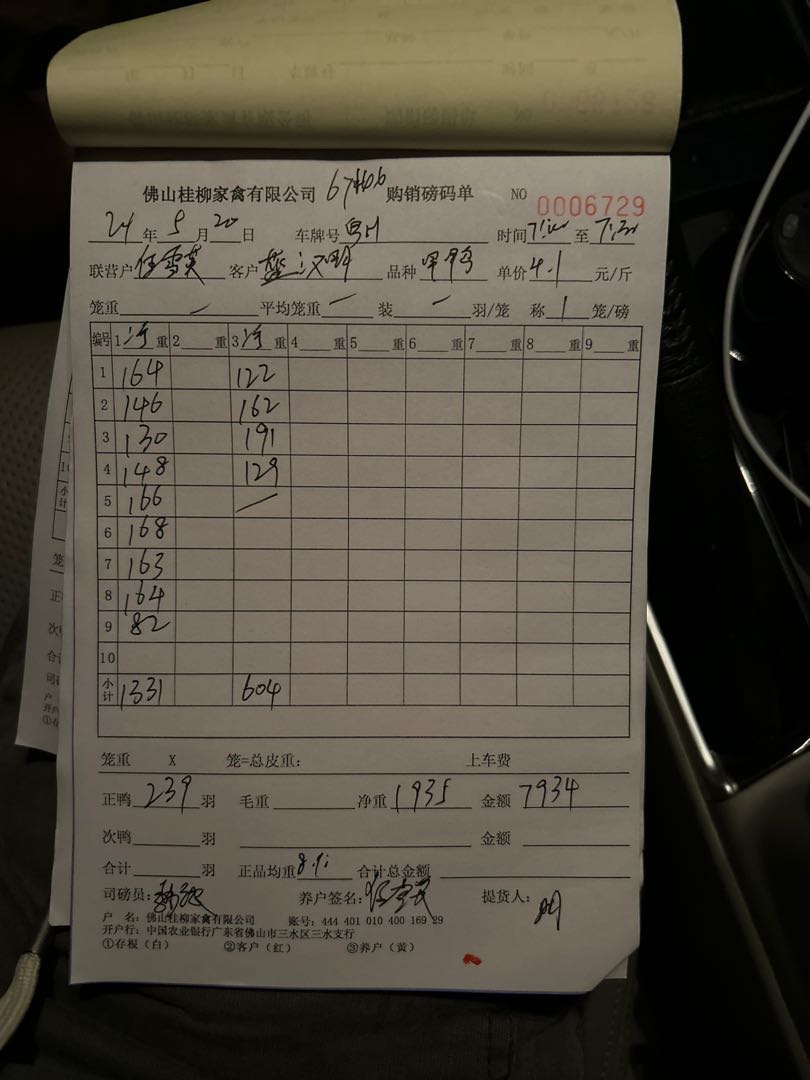 佛山桂柳家禽有限公司 购销磅码单 NO 0006729
24年5月20日 车牌号 时间 至
联营户任雪英 客户 品种 单价4.1元/斤
笼重 — 平均笼重 — 装 — 羽/笼 称 1 笼/磅
编号 1净重 2 重 3净重 4 重 5 重 6 重 7 重 8 重 9 重
1 164 122
2 146 162
3 130 191
4 148 129
5 166 —
6 168
7 163
8 164
9 82
10
小计 1331 604
笼重 X 笼=总皮重: 上车费
正鸭 239 羽 毛重 净重 1935 金额 7934
次鸭 羽 金额
合计 羽 正品均重 8.1 合计总金额
司磅员: 养户签名: 提货人:
户 名: 佛山桂柳家禽有限公司 账号: 444 401 010 400 169 29
开户行: 中国农业银行广东省佛山市三水区三水支行
①存根(白) ②客户(红) ③养户(黄)